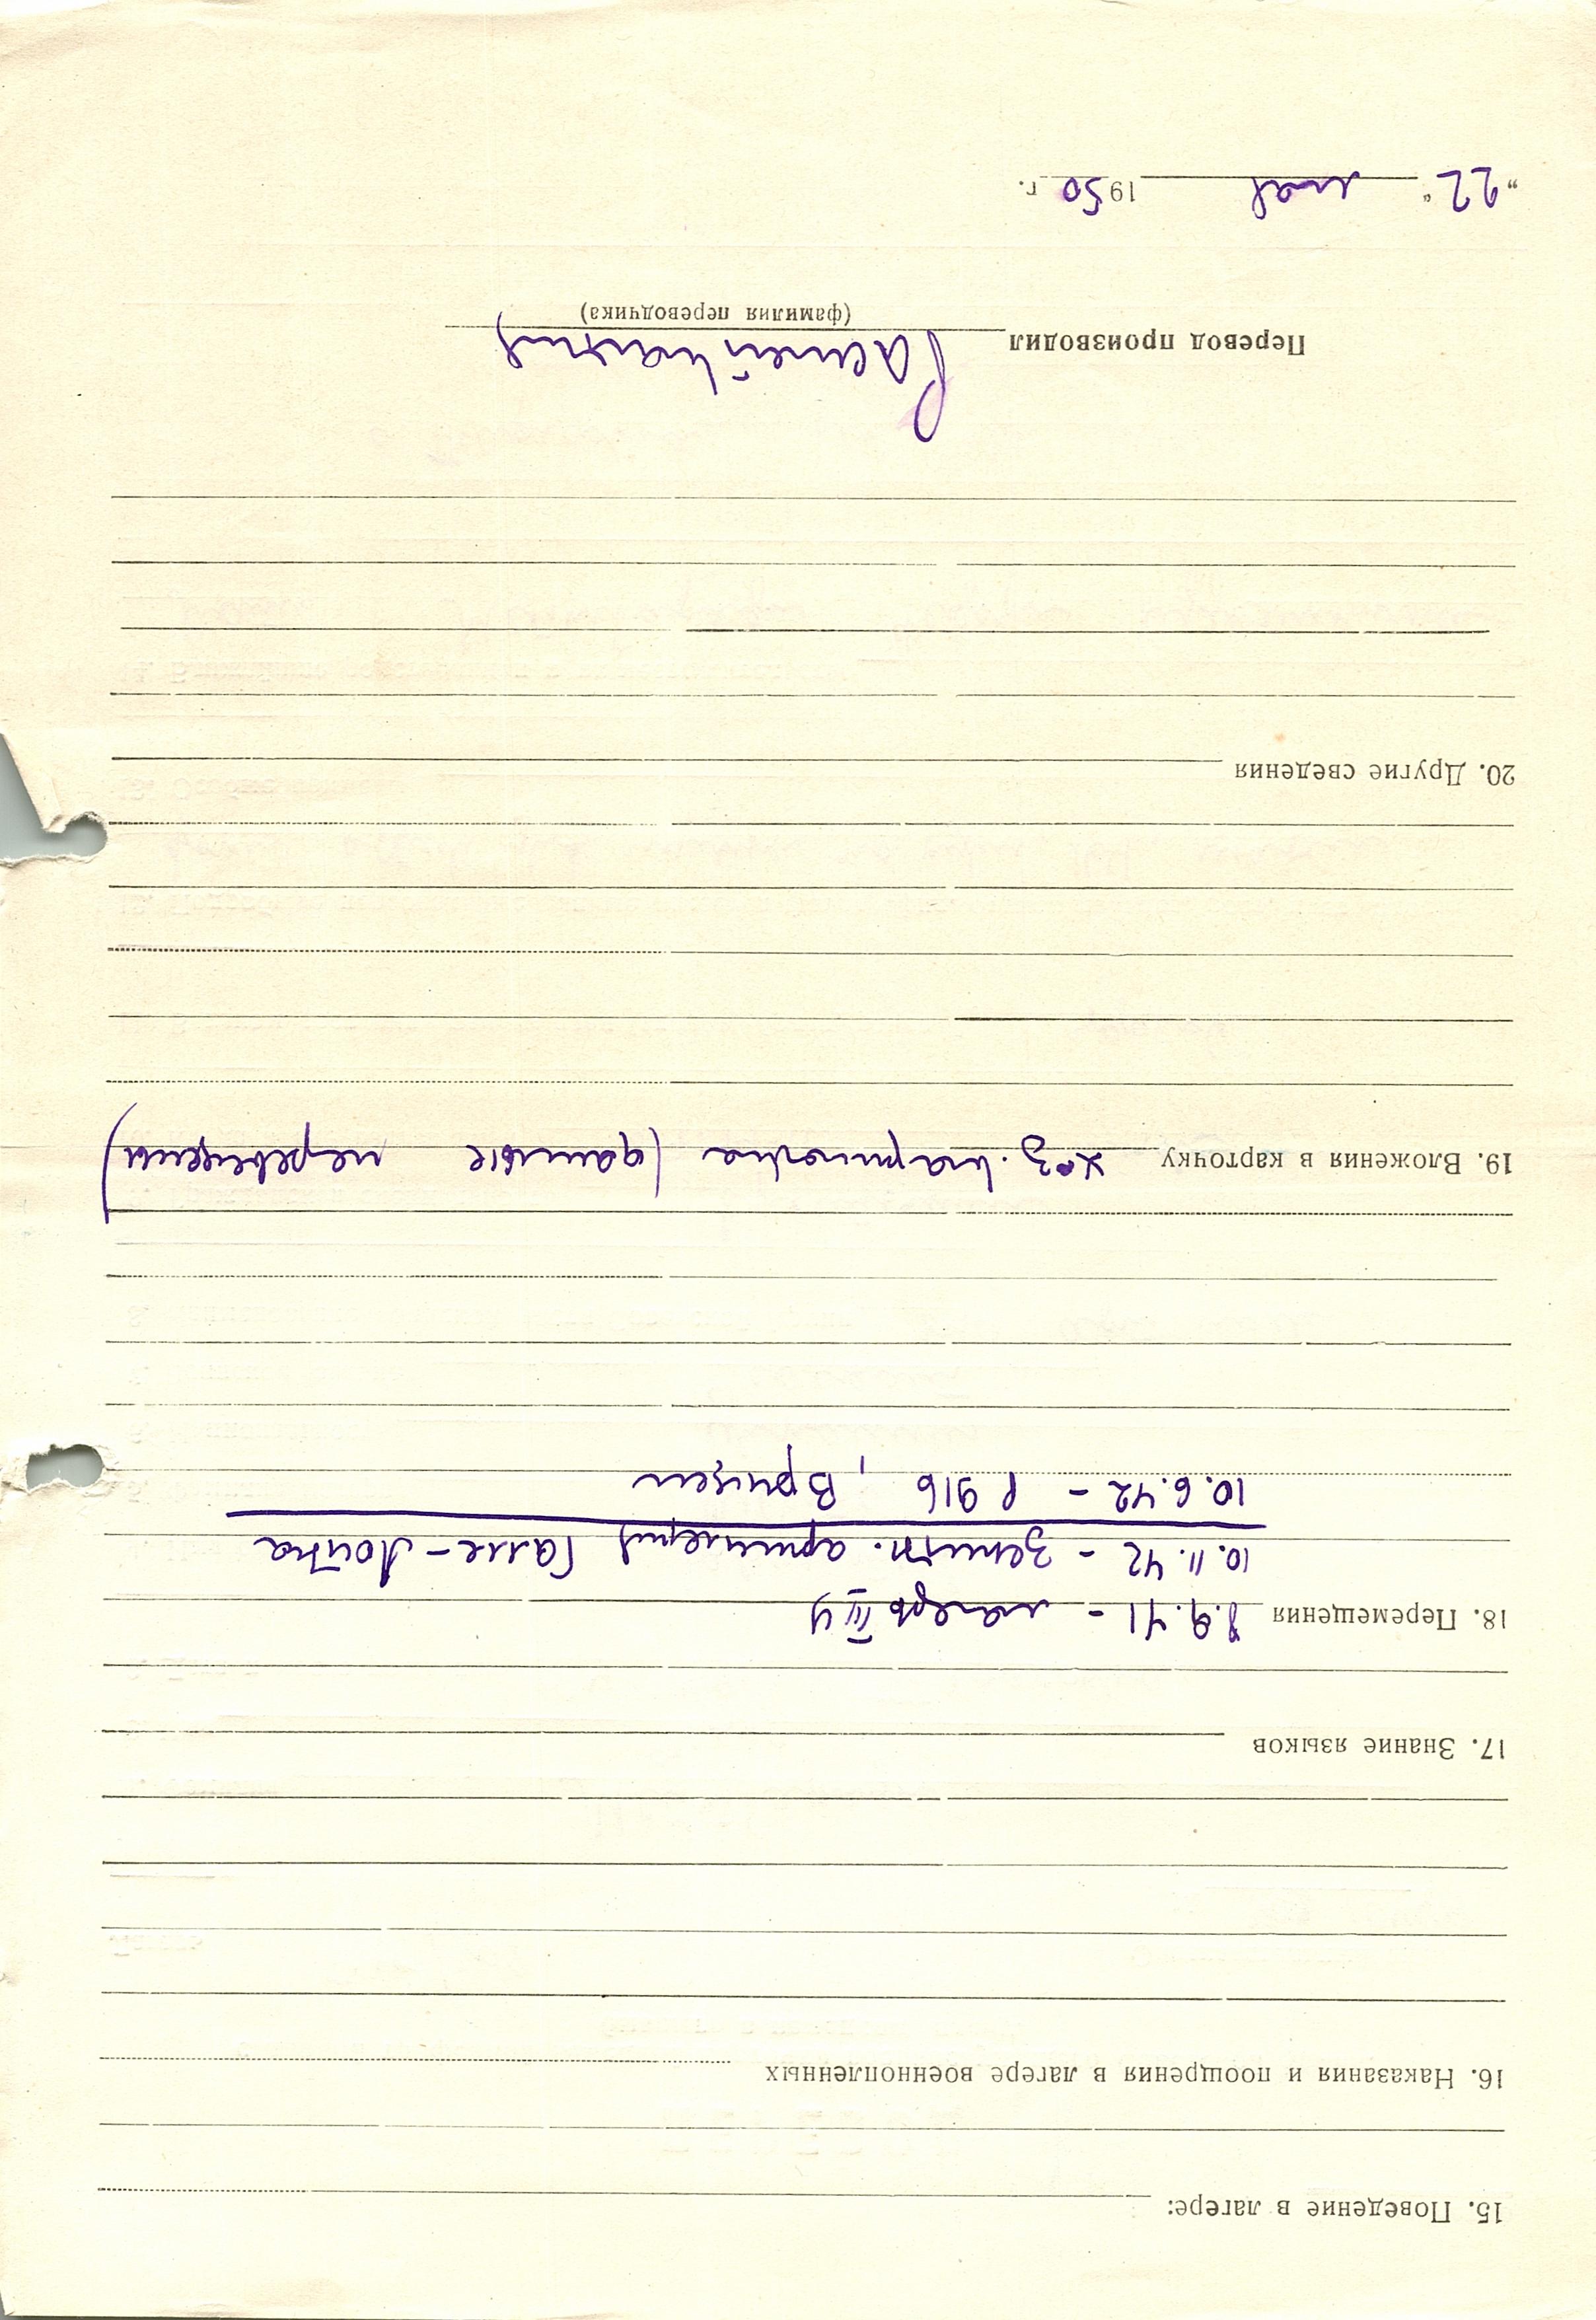 15. Поведение в лагере:
16. Наказания и поощрения в лагере военнопленных
17. Знание языков
18. Перемещения 8.9.41 – лагерь III
10.11.42 – зенитн. артиллерия Галле-Лойна
10.6.42 – Р 916, Врицен
19. Вложения в карточку хоз. карточка (данные переведены)
20. Другие сведения
Перевод производил
(фамилия переводчика)
„22“ мая 1950 г.